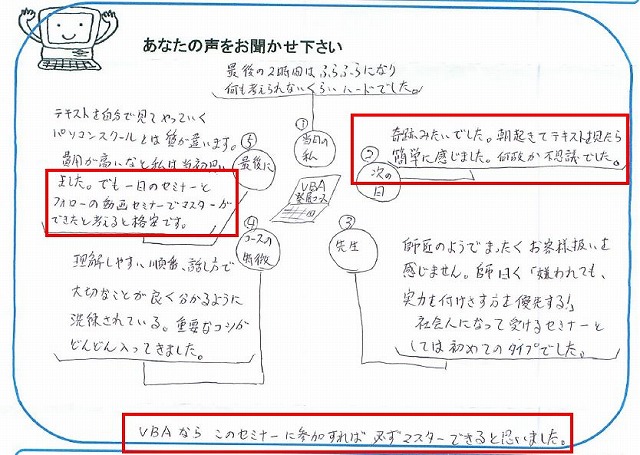 あなたの声をお聞かせ下さい
最後の2時間はふらふらになり
何も考えられないくらいハードでした。
①
当日の
私
②
次の
日
奇跡みたいでした。朝起きてテキストを見たら
簡単に感じました。何故か不思議でした。
③
先生
師匠のようでまったくお客様扱いを
感じません。師曰く「嫌われても、
実力を付けさす方を優先する!」
社会人になって受けるセミナーと
しては初めてのタイプでした。
④
コースの
特徴
理解しやすい順番、話し方で
大切なことが良く分かるように
洗練されている。重要なコツが
どんどん入ってきました。
⑤
最後に
テキストを自分で見てやっていく
パソコンスクールとは質が違います。
費用が高いなと私は当初思い
ました。でも一日のセミナーと
フォローの動画セミナーでマスターが
できたと考えると格安です。
VBA
コース
VBAなら このセミナーに参加すれば 必ずマスターできると思いました。